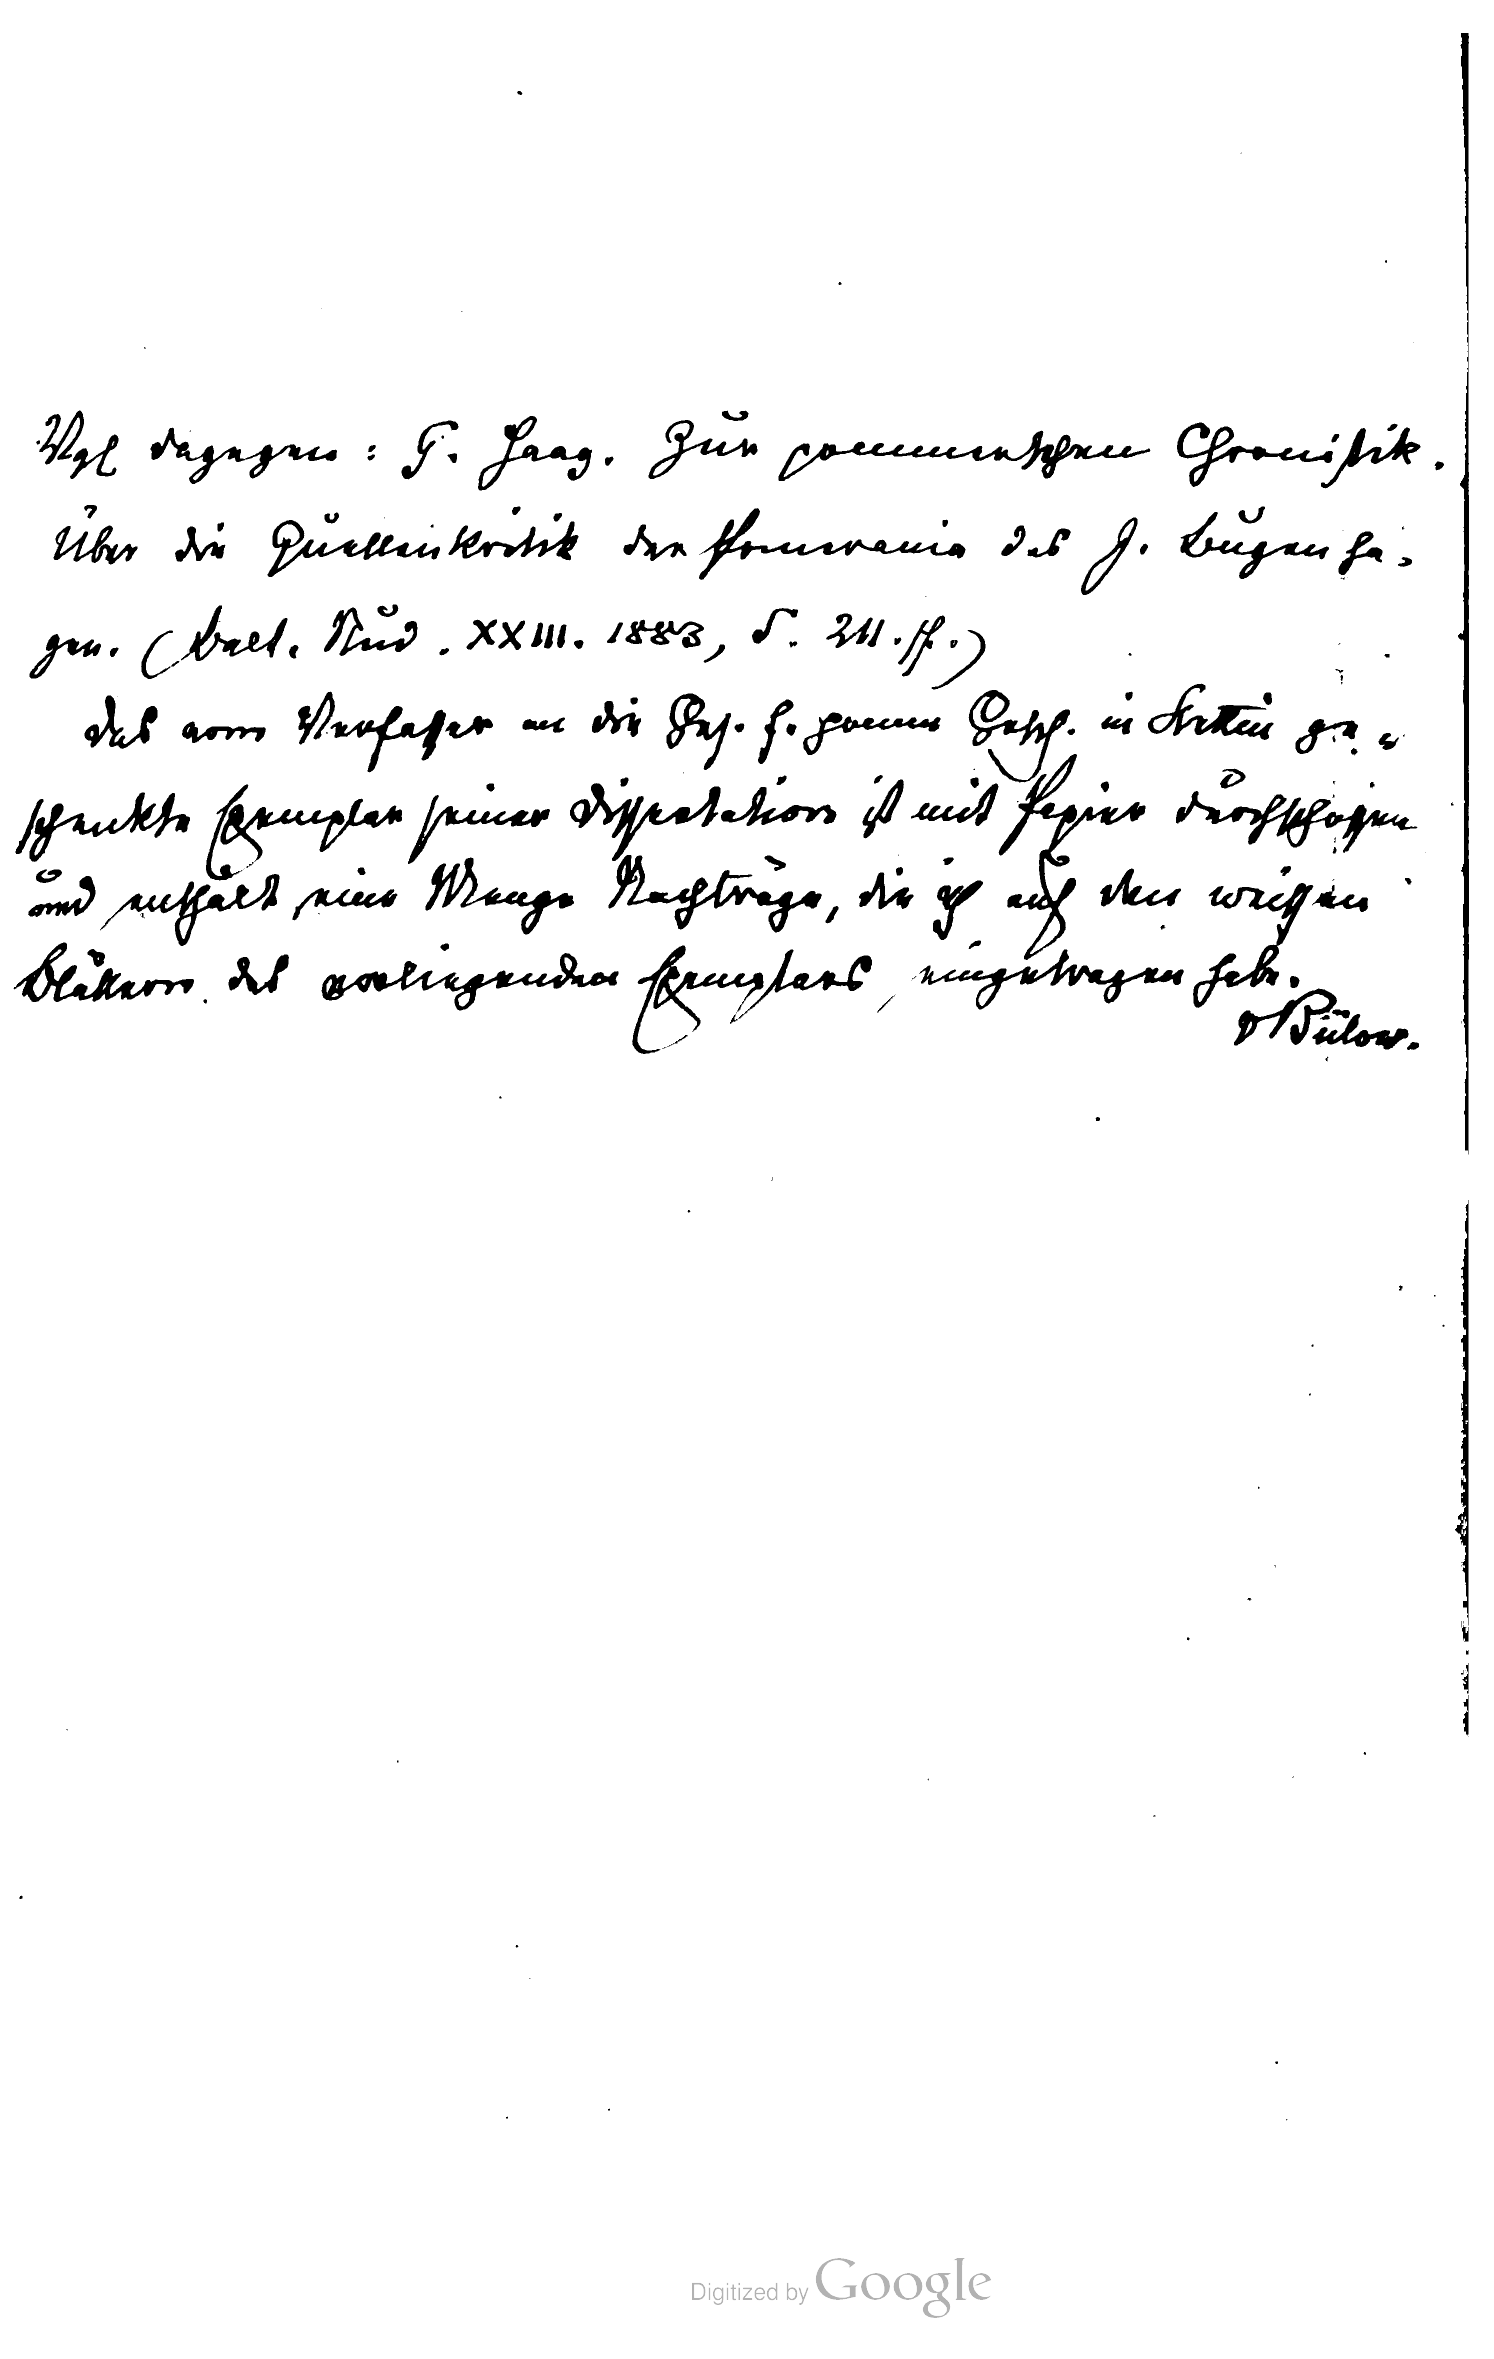 Vgl dagegen: G. Haag. Zur pommerschen Chronistik.
Über die Quellenkritik der Pomerania des J. Bugenha-
gen. (Balt. Stud. XXXIII. 1883, S. 211. ff.)
Das vom Verfasser an die Ges. f. pomm Gesch. in Stettin ge-
schenkte Exemplar seiner Dissertation ist mit Papier durchschossen
und enthält eine Menge Nachträge, die ich auf den weissen
Blättern des vorliegenden Exemplars eingetragen habe.
vBülow.
Digitized by Google